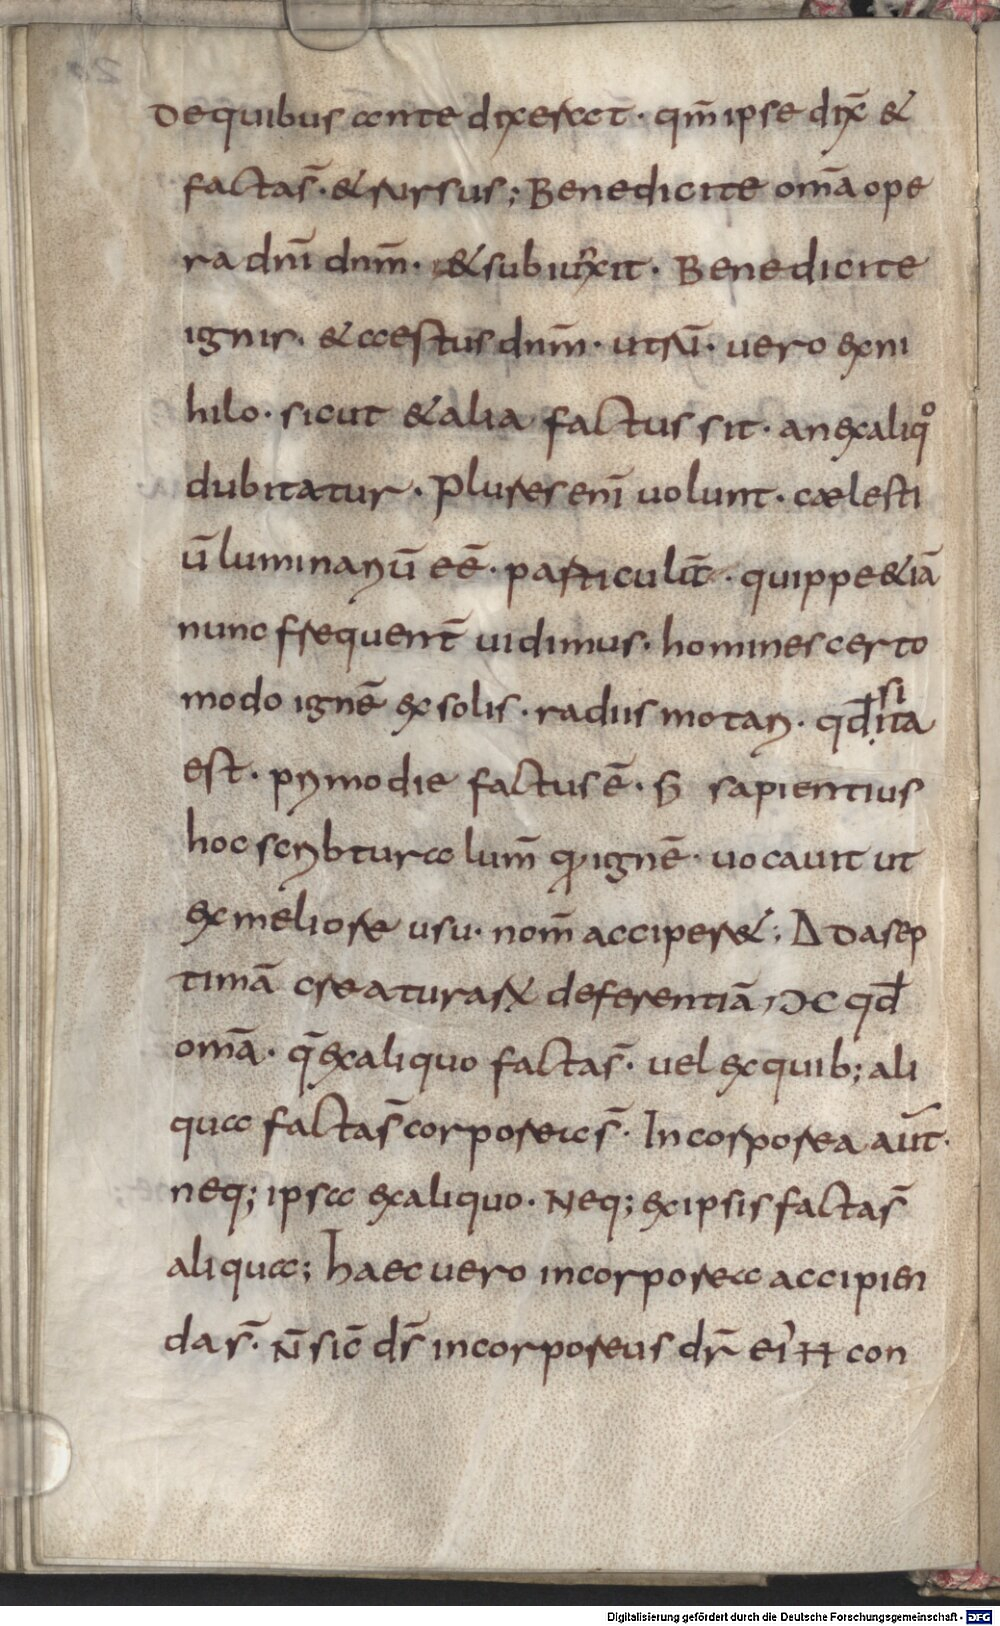 De quibus ante dixerat· qm̄ ipse dix̄ &
facta s̄· & rursus; Benedicite om̄a ope
ra dnī dnm̄· & subiunxit· Benedicite
ignis· & aestus dnm̄· utrū· vero ex ni
hilo· sicut & alia factus sit· an ex aliqͦ
dubitatur· Plures enī uolunt· cælesti
ū luminariū eē· particulā· quippe & iā
nunc frequent̄ uidimus· homines certo
modo ignē ex solis· radiis motari· qđ si ita
est· primo die factus ē· s; sapientius
hoc scribtura lum̄ qͣ ignē· uocauit ut
ex meliore usu· nom̄ acciper&; Ad a sep
timā creaturarꝝ deferentiā, hc qđ
om̄a· q̄ ex aliquo facta s̄· vel ex quib; ali
qua facta s̄ corporea s̄· Incorporea aūt·
neq; ipsa ex aliquo· Neq; ex ipsis facta s̄
aliqua; haec vero incorporea accipien
da s̄· N̄ sic̄ d̄s incorporeus dr̄ ei' H con